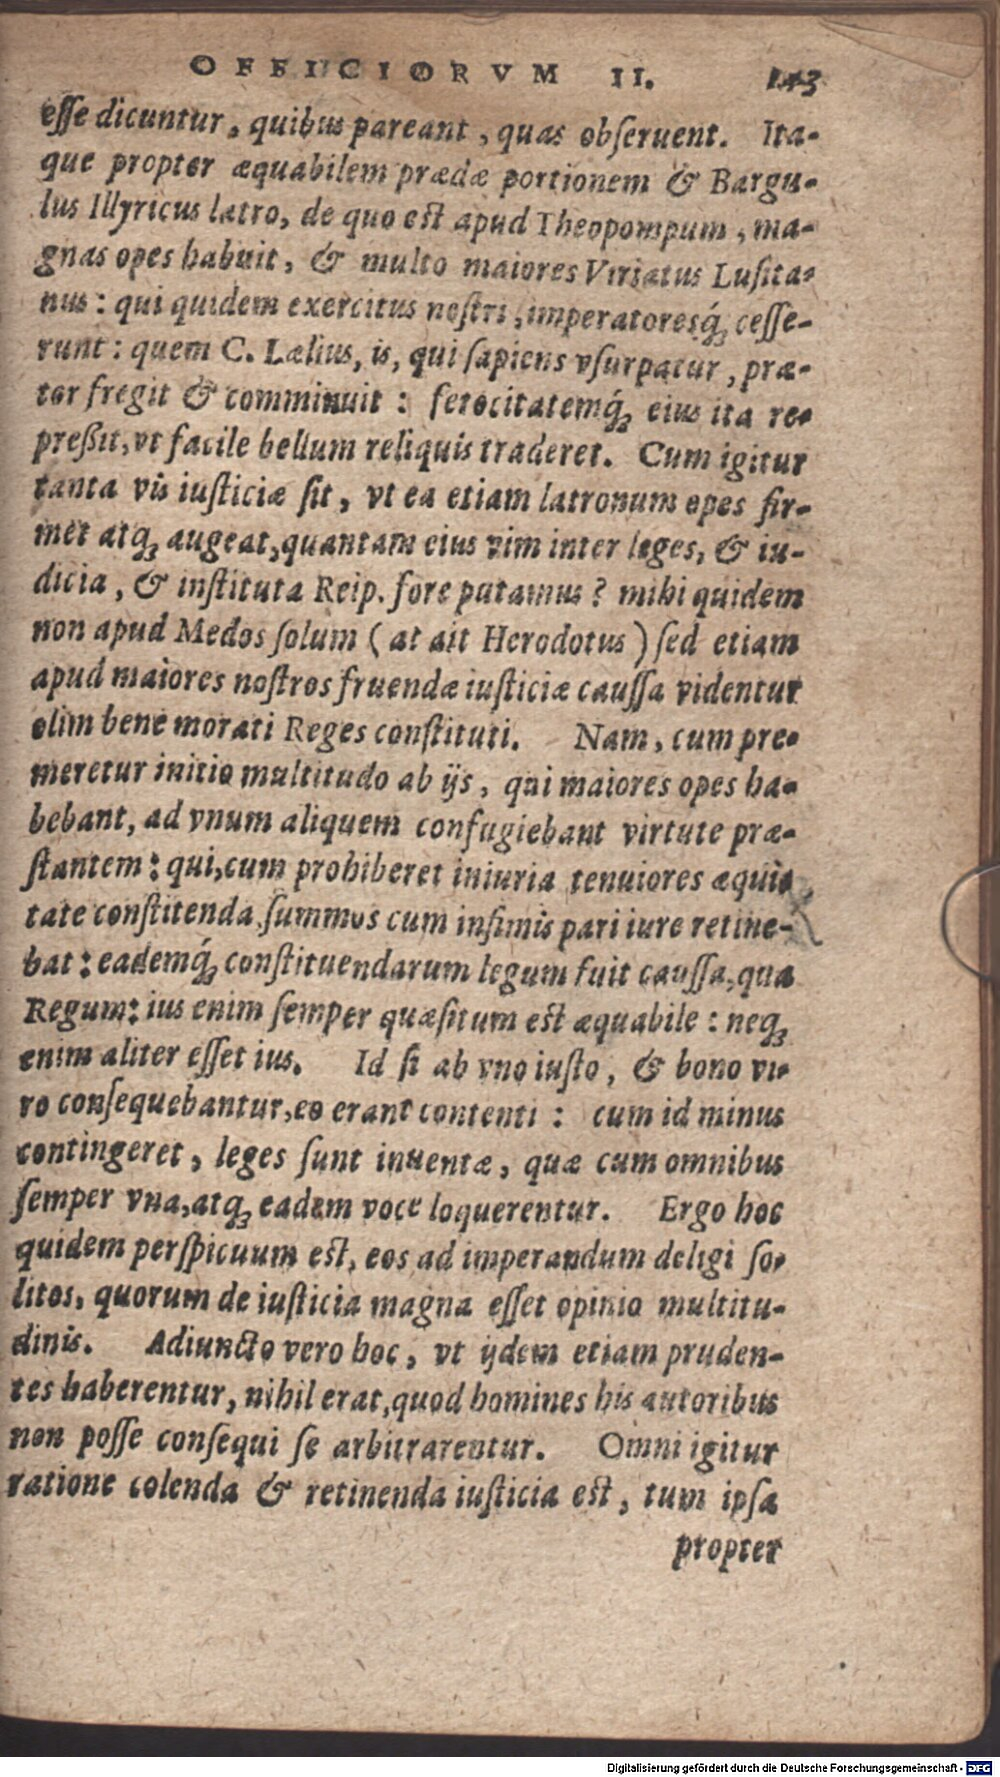 OFFICIORVM II. 143
esse dicuntur, quibus pareant, quas obseruent. Ita-
que propter æquabilem prædæ portionem & Bargu-
lus Illyricus latro, de quo est apud Theopompum, ma-
gnas opes habuit, & multo maiores Viriatus Lusita-
nus: qui quidem exercitus nostri, imperatoresq́; cesse-
runt: quem C. Lælius, is, qui sapiens vsurpatur, præ-
tor fregit & comminuit: ferocitatemq́; eius ita re-
preßit, vt facile bellum reliquis traderet. Cum igitur
tanta vis iusticiæ sit, vt ea etiam latronum opes fir-
met atq; augeat, quantam eius vim inter leges, & iu-
dicia, & instituta Reip. fore putamus? mihi quidem
non apud Medos solum (at ait Herodotus) sed etiam
apud maiores nostros fruendæ iusticiæ caussa videntur
olim bene morati Reges constituti. Nam, cum pre-
meretur initio multitudo ab ijs, qui maiores opes ha-
bebant, ad vnum aliquem confugiebant virtute præ-
stantem: qui, cum prohiberet iniuria tenuiores æqui-
tate constitenda, summos cum infimis pari iure retine-
bat: eademq́; constituendarum legum fuit caussa, qua
Regum: ius enim semper quæsitum est æquabile: neq;
enim aliter esset ius. Id si ab vno iusto, & bono vi-
ro consequebantur, eo erant contenti: cum id minus
contingeret, leges sunt inuentæ, quæ cum omnibus
semper vna, atq; eadem voce loquerentur. Ergo hoc
quidem perspicuum est, eos ad imperandum deligi so-
litos, quorum de iusticia magna esset opinio multitu-
dinis. Adiuncto vero hoc, vt ijdem etiam pruden-
tes haberentur, nihil erat, quod homines his autoribus
non posse consequi se arbitrarentur. Omni igitur
ratione colenda & retinenda iusticia est, tum ipsa
propter
Digitalisierung gefördert durch die Deutsche Forschungsgemeinschaft - DFG